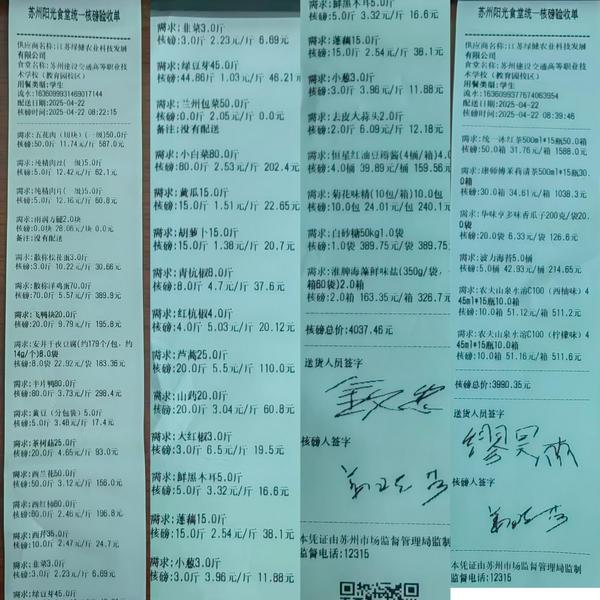 苏州阳光食堂统一核磅验收单
供应商名称:江苏绿健农业科技发展
有限公司
食堂名称:苏州建设交通高等职业技
术学校（教育园校区）
用餐类型:学生
流水:1636099931469017144
配送日期:2025-04-22
核磅时间:2025-04-22 08:22:15
需求:五花肉（切块）(一级)50.0斤
核磅:50.0斤 11.74元/斤 587.0元
需求:纯精肉丝（一级）5.0斤
核磅:5.0斤 12.42元/斤 62.1元
需求:纯精肉片（一级）5.0斤
核磅:5.0斤 12.16元/斤 60.8元
核磅:0.0块 28.06元/块 0.0元
备注:没有配送
需求:散称松花蛋3.0斤
核磅:3.0斤 10.22元/斤 30.66元
需求:散称洋鸡蛋70.0斤
核磅:70.0斤 5.57元/斤 389.9元
需求:飞鸭块20.0斤
核磅:20.0斤 9.79元/斤 195.8元
需求:安井千夜豆腐(约179个/包，约
14g/个)8.0袋
核磅:8.0袋 22.92元/袋 183.36元
需求:半片鸭80.0斤
核磅:80.0斤 3.73元/斤 298.4元
需求:黄豆（分包装）5.0斤
核磅:5.0斤 3.48元/斤 17.4元
需求:茶树菇25.0斤
核磅:20.0斤 4.65元/斤 93.0元
需求:西兰花50.0斤
核磅:50.0斤 3.12元/斤 156.0元
需求:西红柿80.0斤
核磅:80.0斤 2.46元/斤 196.8元
需求:西芹35.0斤
核磅:10.0斤 2.47元/斤 24.7元
需求:韭菜3.0斤
核磅:3.0斤 2.23元/斤 6.69元
需求:绿豆芽45.0斤
需求:韭菜3.0斤
核磅:3.0斤 2.23元/斤 6.69元
需求:绿豆芽45.0斤
核磅:44.86斤 1.03元/斤 46.21元
需求:兰州包菜50.0斤
核磅:0.0斤 2.05元/斤 0.0元
备注:没有配送
需求:小白菜80.0斤
核磅:80.0斤 2.53元/斤 202.4元
需求:黄瓜15.0斤
核磅:15.0斤 1.51元/斤 22.65元
需求:胡萝卜15.0斤
核磅:15.0斤 1.38元/斤 20.7元
需求:青杭椒8.0斤
核磅:8.0斤 4.7元/斤 37.6元
需求:红杭椒4.0斤
核磅:4.0斤 5.03元/斤 20.12元
需求:芦蒿25.0斤
核磅:20.0斤 5.5元/斤 110.0元
需求:山药20.0斤
核磅:20.0斤 3.04元/斤 60.8元
需求:大红椒3.0斤
核磅:3.0斤 6.5元/斤 19.5元
需求:鲜黑木耳5.0斤
核磅:5.0斤 3.32元/斤 16.6元
需求:莲藕15.0斤
核磅:15.0斤 2.54元/斤 38.1元
需求:小葱3.0斤
核磅:3.0斤 3.96元/斤 11.88元
需求:鲜黑木耳5.0斤
核磅:5.0斤 3.32元/斤 16.6元
需求:莲藕15.0斤
核磅:15.0斤 2.54元/斤 38.1元
需求:小葱3.0斤
核磅:3.0斤 3.96元/斤 11.88元
需求:去皮大蒜头2.0斤
核磅:2.0斤 6.09元/斤 12.18元
需求:恒星红油豆瓣酱(4桶/箱)4.0
核磅:4.0桶 39.89元/桶 159.56元
需求:菊花味精(10包/箱)10.0包
核磅:10.0包 24.01元/包 240.1元
需求:白砂糖50kg1.0袋
核磅:1.0袋 389.75元/袋 389.75元
需求:淮牌海藻鲜味盐(350g/袋,
箱60袋)2.0箱
核磅:2.0箱 163.35元/箱 326.7元
核磅总价:4037.46元
送货人员签字
核磅人签字
本凭证由苏州市场监督管理局监制
监督电话:12315
苏州阳光食堂统一核磅验收单
供应商名称:江苏绿健农业科技发展
有限公司
食堂名称:苏州建设交通高等职业技
术学校（教育园校区）
用餐类型:学生
流水:1636099377764063954
配送日期:2025-04-22
核磅时间:2025-04-22 08:39:46
需求:统一冰红茶500ml*15瓶50.0箱
核磅:50.0箱 31.76元/箱 1588.0元
需求:康师傅茉莉清茶500ml*15瓶30.
0箱
核磅:30.0箱 34.61元/箱 1038.3元
需求:华味亨多味香瓜子200克/袋20.
0袋
核磅:20.0袋 6.33元/袋 126.6元
需求:波力海苔5.0桶
核磅:5.0桶 42.93元/桶 214.65元
需求:农夫山泉水溶C100（西柚味）4
45ml*15瓶10.0箱
核磅:10.0箱 51.12元/箱 511.2元
需求:农夫山泉水溶C100（柠檬味）4
45ml*15瓶10.0箱
核磅:10.0箱 51.16元/箱 511.6元
核磅总价:3990.35元
送货人员签字
核磅人签字
本凭证由苏州市场监督管理局监制
监督电话:12315